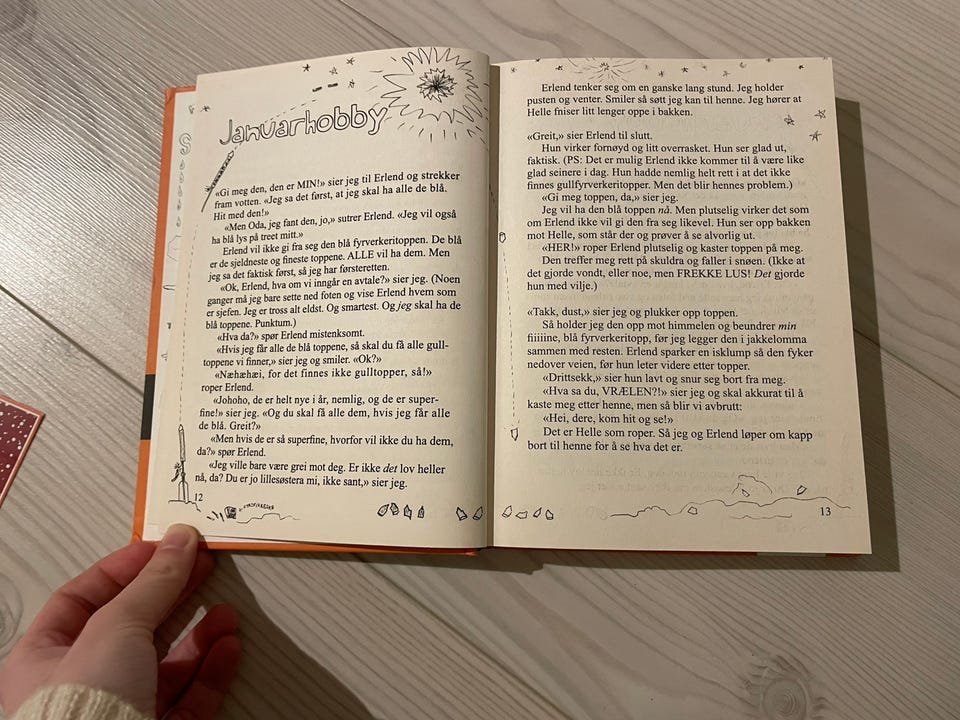 Januarhobby
«Gi meg den, den er MIN!» sier jeg til Erlend og strekker
fram votten. «Jeg sa det først, at jeg skal ha alle de blå.
Hit med den!»
«Men Oda, jeg fant den, jo,» sutrer Erlend. «Jeg vil også
ha blå lys på treet mitt.»
Erlend vil ikke gi fra seg den blå fyrverkeritoppen. De blå
er de sjeldneste og fineste toppene. ALLE vil ha dem. Men
jeg sa det faktisk først, så jeg har førsteretten.
«Ok, Erlend, hva om vi inngår en avtale?» sier jeg. (Noen
ganger må jeg bare sette ned foten og vise Erlend hvem som
er sjefen. Jeg er tross alt eldst. Og smartest. Og jeg skal ha de
blå toppene. Punktum.)
«Hva da?» spør Erlend mistenksomt.
«Hvis jeg får alle de blå toppene, så skal du få alle gull-
toppene vi finner,» sier jeg og smiler. «Ok?»
«Næhæhæi, for det finnes ikke gulltopper, så!»
roper Erlend.
«Johoho, de er helt nye i år, nemlig, og de er super-
fine!» sier jeg. «Og du skal få alle dem, hvis jeg får alle
de blå. Greit?»
«Men hvis de er så superfine, hvorfor vil ikke du ha dem,
da?» spør Erlend.
«Jeg ville bare være grei mot deg. Er ikke det lov heller
nå, da? Du er jo lillesøstera mi, ikke sant,» sier jeg.
12
Erlend tenker seg om en ganske lang stund. Jeg holder
pusten og venter. Smiler så søtt jeg kan til henne. Jeg hører at
Helle fniser litt lenger oppe i bakken.
«Greit,» sier Erlend til slutt.
Hun virker fornøyd og litt overrasket. Hun ser glad ut,
faktisk. (PS: Det er mulig Erlend ikke kommer til å være like
glad seinere i dag. Hun hadde nemlig helt rett i at det ikke
finnes gullfyrverkeritopper. Men det blir hennes problem.)
«Gi meg toppen, da,» sier jeg.
Jeg vil ha den blå toppen nå. Men plutselig virker det som
om Erlend ikke vil gi den fra seg likevel. Hun ser opp bakken
mot Helle, som står der og prøver å se alvorlig ut.
«HER!» roper Erlend plutselig og kaster toppen på meg.
Den treffer meg rett på skuldra og faller i snøen. (Ikke at
det gjorde vondt, eller noe, men FREKKE LUS! Det gjorde
hun med vilje.)
«Takk, dust,» sier jeg og plukker opp toppen.
Så holder jeg den opp mot himmelen og beundrer min
fiiiiine, blå fyrverkeritopp, før jeg legger den i jakkelomma
sammen med resten. Erlend sparker en isklump så den fyker
nedover veien, før hun leter videre etter topper.
«Drittsekk,» sier hun lavt og snur seg bort fra meg.
«Hva sa du, VRÆLEN?!» sier jeg og skal akkurat til å
kaste meg etter henne, men så blir vi avbrutt:
«Hei, dere, kom hit og se!»
Det er Helle som roper. Så jeg og Erlend løper om kapp
bort til henne for å se hva det er.
13